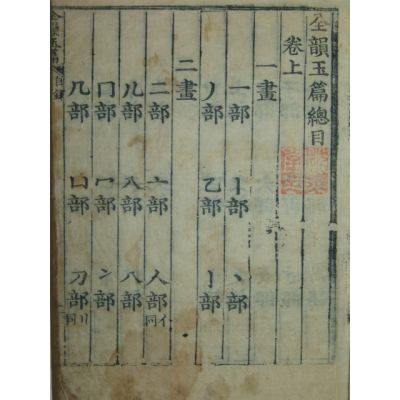 全韻玉篇總目
卷上
一畫
一部 丨部 丶部
丿部 乙部 亅部
二畫
二部 亠部 人部亻同
儿部 入部 八部
冂部 冖部 冫部
几部 凵部 刀部刂同
全韻玉篇